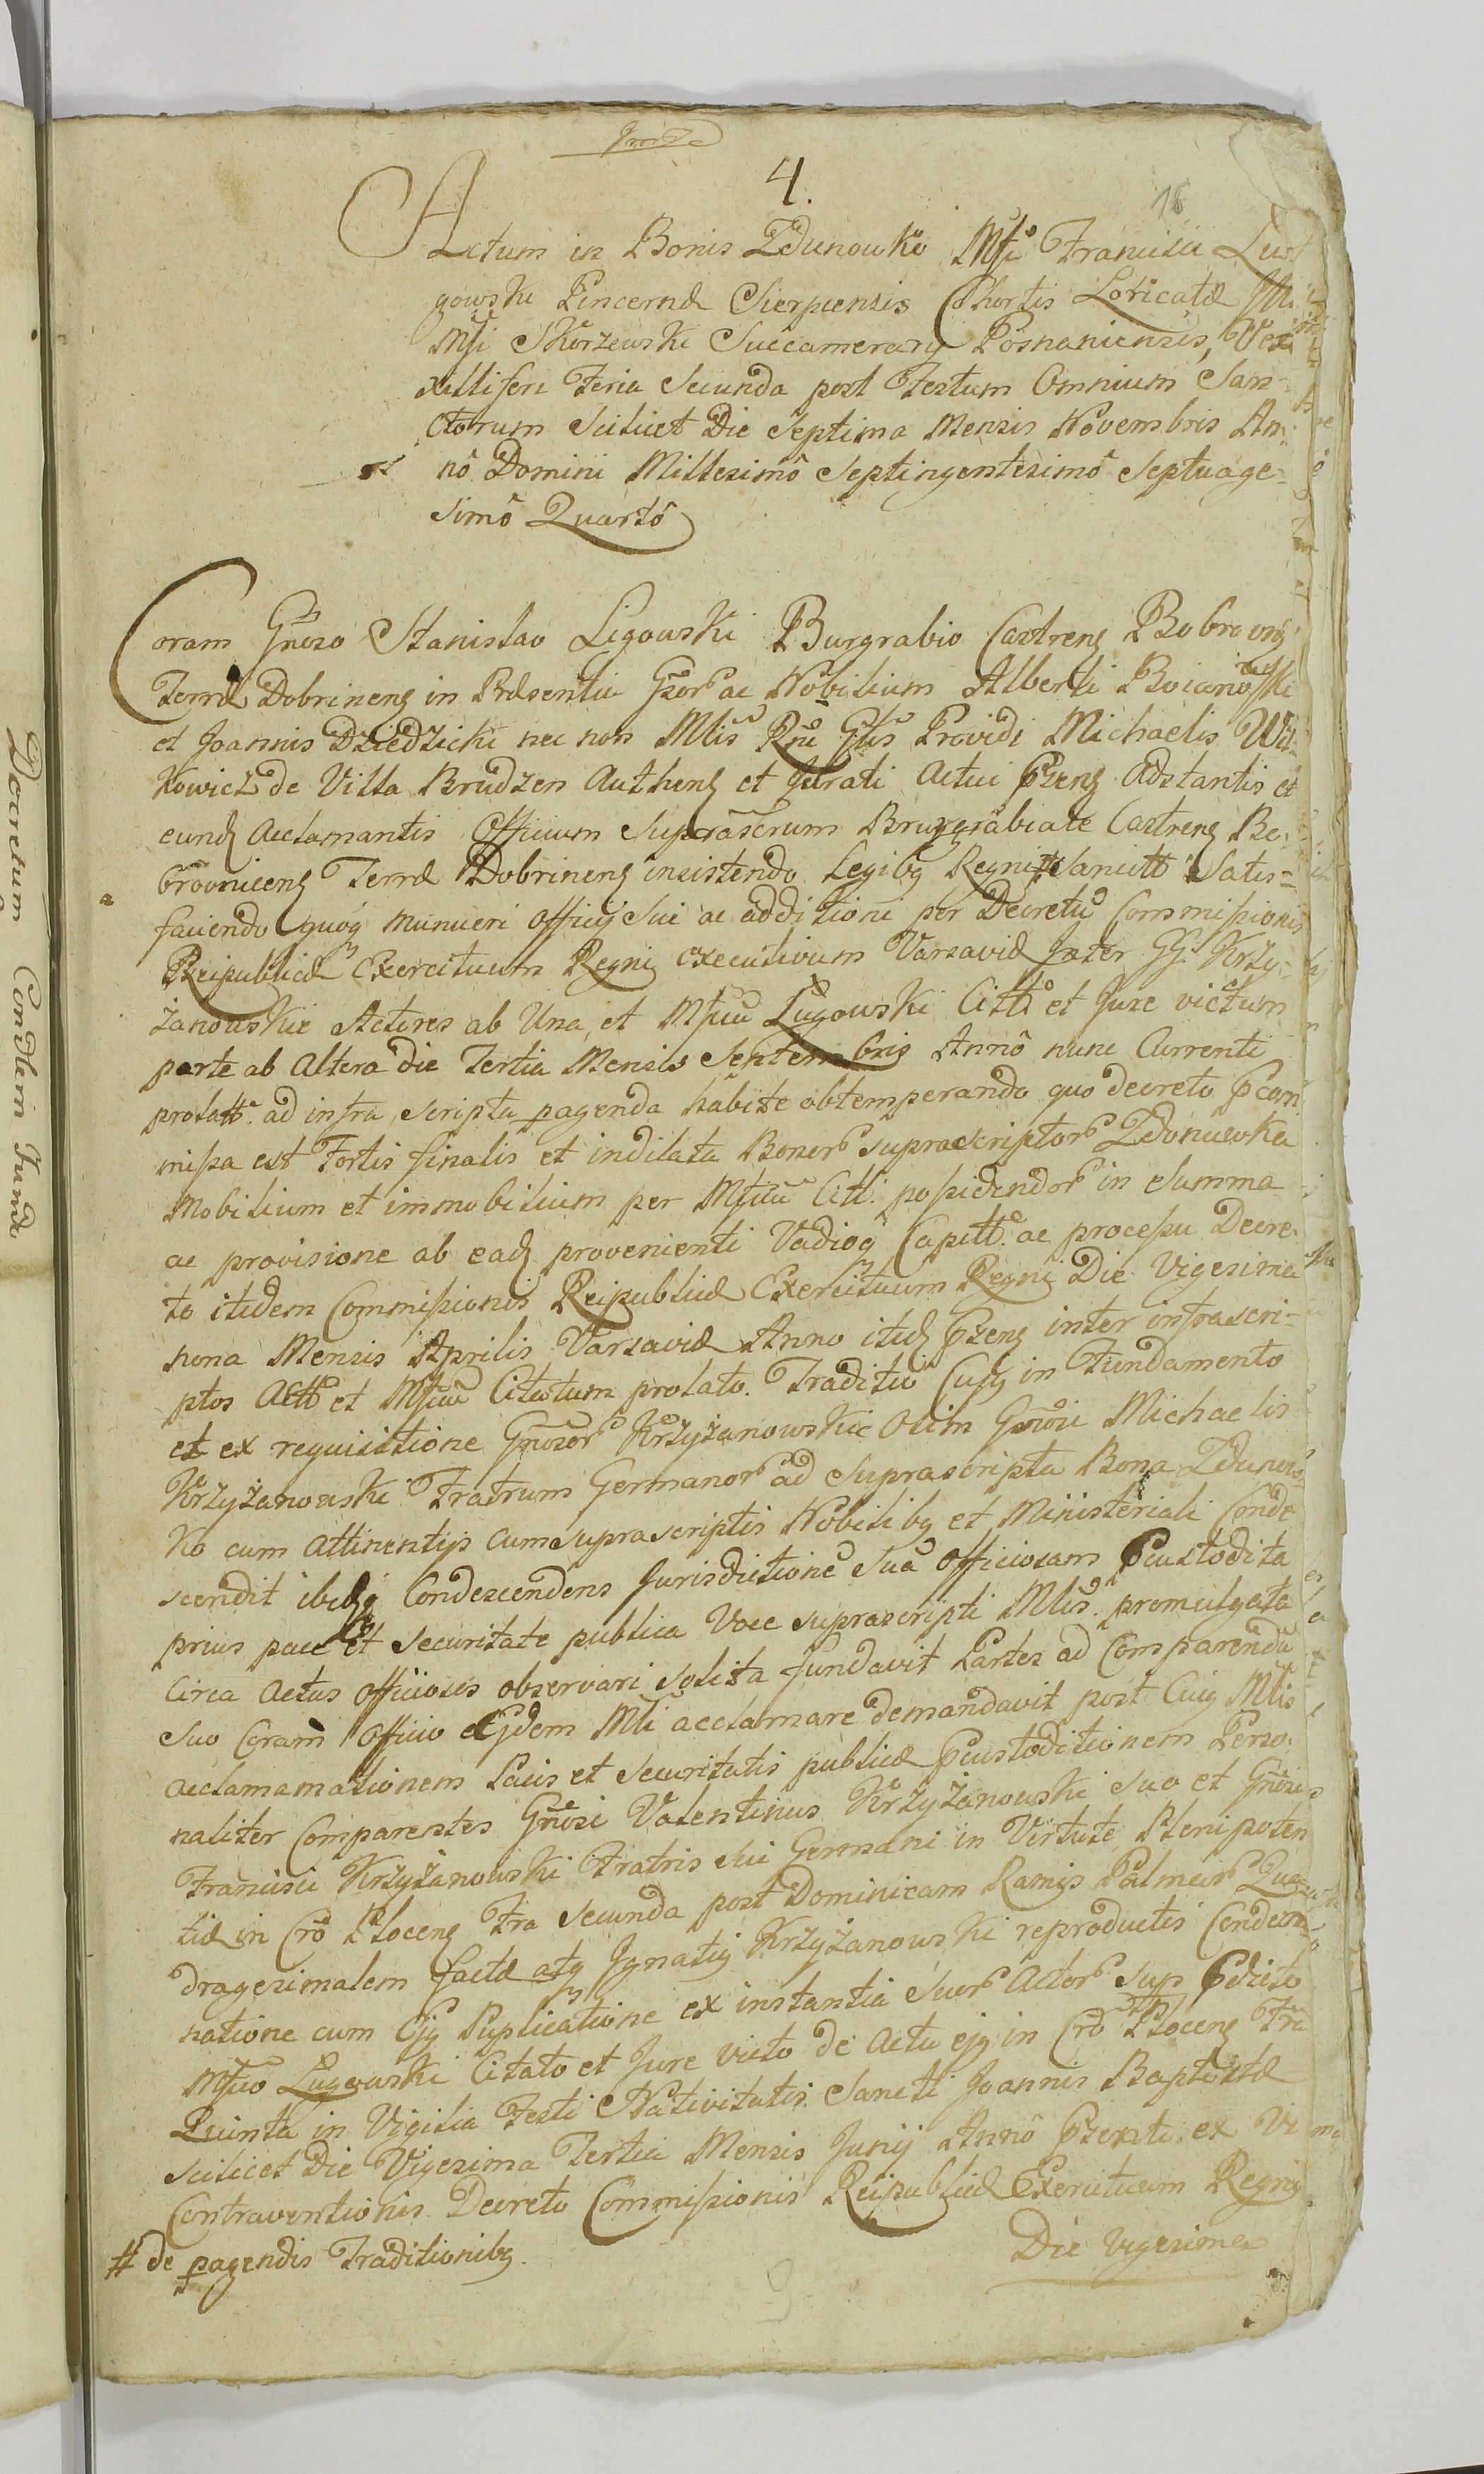 4.
18
Actum in Bonis Zdunowko Mfci Francisci Lu
gowski Pincernæ Sierpcensis Cohortis Loricatæ
Mfci Skorzewski Succamerarij Posnaniensis, Vex
xilliferi Feria Secunda post Festum Omnium San-
ctorum Scilicet Die Septima Mensis Novembris An-
nô Domini Millesimô Septingentesimô Septuage-
simô Quartô
Coram Gñoso Stanislao Ligowski Burgrabio Castreng Bobrovng
Terræ Dobrineng in Præsentia Gsor ac Nobilium Alberti
et Joannis Dziedzicki nec non Mlis Rni Glis Providi Michaelis Wit-
kowicz de Villa Brudzen Autheng et Jurati Actui Pseng Adstantis et
eund Acclamantis Officium Suprascrum Burggrabiale Castreng Bo-
brovniceng Terræ Dobrineng insistendo Legibg Regni Sancitt Satis=
faciendo quog munueri officij Sui ac additioni per Decretu Commissionis
Reipublicæ Exercituum Regni executivum Varsaviæ Inter GG. Krzy-
żanowskie Actores ab Una, et Mfcuu Lugowski Citt et Jure victum
parte ab Altera die Tertia Mensis Septembris Annô nunc Currenti
prolatt ad infra scripta pagenda habite obtemperando quo decreto Pcom
missa est Fortis finalis et indilata Bonor suprascriptor Zdunowka
Mobilium et immobilium per Mfcuu Citt possidendor in Summa
ac provisione ab ead provenienti Vadiog Capitt ac processu Decre-
to itidem Commissionis Reipublicæ Exercituum Regni Die Vigesima
nona Mensis Aprilis Varsaviæ Anno itid Pseng inter infrascri-
ptos Actt et Mfcuu Citatum prolato. Traditio Cujg in Fundamento
et ex requisitione Gnosor Krzyżanowskie olim Gnosi Michaelis
Krzyżanowski Fratrum Germanor ad Suprascripta Bona Zdunow
ko cum Attinentijs cum suprascriptis Nobilibg et Ministeriali Conde
scendit ibidg Condescendens Jurisdictione Sua Officiosam Pcustodita
prius pace et securitate publica Voce suprascripti Mlis promulgata
Circa Actus officiosos observari solita fundavit Partes ad Comparendu
Suo Coram Officio Mli acclamare demandavit post Cujg Mlis
acclamamationem Pacis et Securitatis publicæ Pcustoditionem Perso-
naliter Comparentes Gnosi Valentinus Krzyżanowski Suo et Gnosi
Francisci Krzyżanowski Fratris Sui Germani in Virtute Plenipoten
tiæ in Cro Ploceng Fra Secunda post Dominicam Ramis Palmar Qua
dragesimalem factæ atg Jgnatij Krzyżanowski reproductis Condem-
natione cum Ejg Puplicatione ex instantia Suor Actor sup Pdicto
Mfcuo Lugowski Citato et Jure victo de Actu ejg in Cro Ploceng Fra
Quinta in Vigilia Festi Nativitatis Sancti Joannis Baptistæ
scilicet Die Vigesima Tertia Mensis Junij Annô Psenti ex Vi
Contraventionis Decreto Commissionis Reipublicæ Exercituum Regni
# de pagendis Traditionibg.
Die Vigesima
Decretum Condtem Fundo